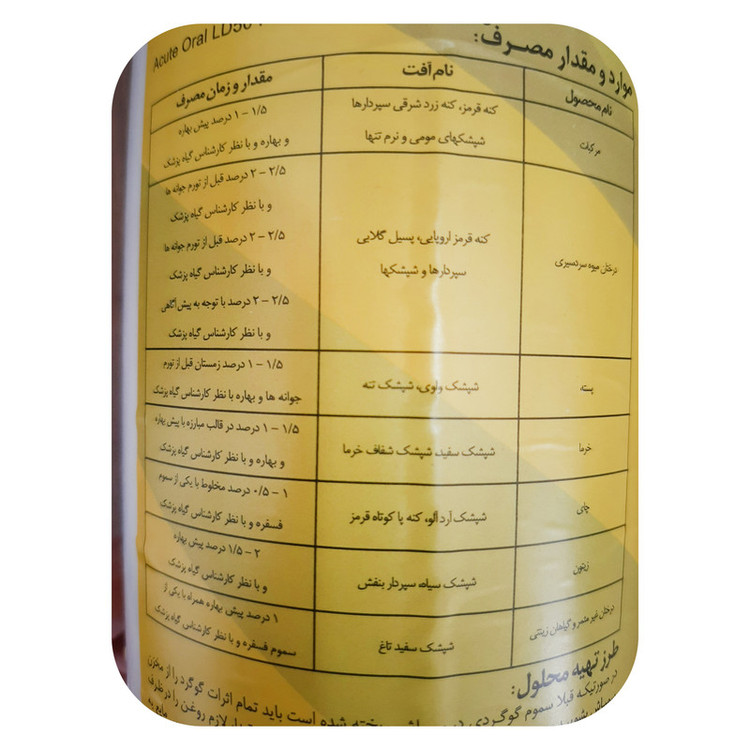 Acute Oral LD50
موارد و مقدار مصرف:
نام محصول
نام آفت
مقدار و زمان مصرف
مرکبات
کنه قرمز، کنه زرد شرقی سپردارها
شپشکهای مومی و نرم تنها
۱/۵ – ۱ درصد پیش بهاره
و بهاره و با نظر کارشناس گیاه پزشک
درختان میوه سردسیری
کنه قرمز اروپایی، پسیل گلابی
سپردارها و شپشکها
۲/۵ – ۲ درصد قبل از تورم جوانه ها
و با نظر کارشناس گیاه پزشک
۲/۵ – ۲ درصد قبل از تورم جوانه ها
و با نظر کارشناس گیاه پزشک
۲/۵ – ۲ درصد با توجه به پیش آگاهی
و با نظر کارشناس گیاه پزشک
پسته
شپشک واوی، شپشک تنه
۱/۵ – ۱ درصد زمستان قبل از تورم
جوانه ها و بهاره با نظر کارشناس گیاه پزشک
خرما
شپشک سفید شپشک شفاف خرما
۱/۵ – ۱ درصد در قالب مبارزه با پیش بهاره
و بهاره و با نظر کارشناس گیاه پزشک
چای
شپشک آرد آلو، کنه پا کوتاه قرمز
۱ – ۰/۵ درصد مخلوط با یکی از سموم
فسفره و با نظر کارشناس گیاه پزشک
زیتون
شپشک سیاه، سپردار بنفش
۲ – ۱/۵ درصد پیش بهاره
و با نظر کارشناس گیاه پزشک
درختان غیر مثمر و گیاهان زینتی
شپشک سفید تاغ
۱ درصد پیش بهاره همراه با یکی از
سموم فسفره و با نظر کارشناس گیاه پزشک
طرز تهیه محلول:
در صورتیکه قبلا سموم گوگردی در ریخته شده است باید تمام اثرات گوگرد را از مخزن
لازم روغن را در ظرف
مایع به